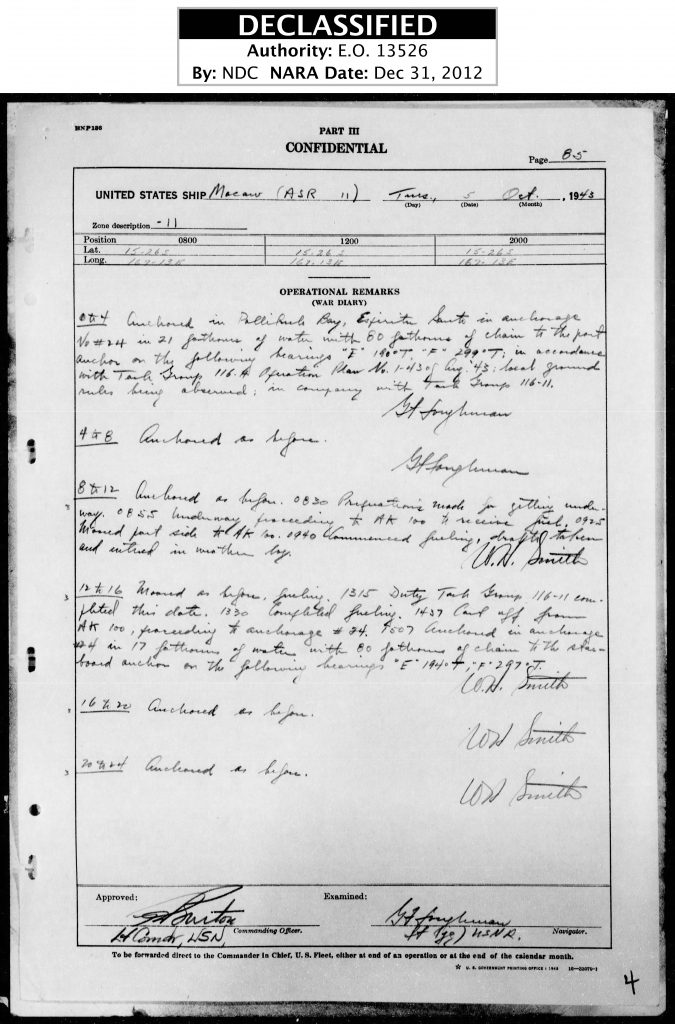 DECLASSIFIED
Authority: E.O. 13526
By: NDC NARA Date: Dec 31, 2012
HNP186
PART III
CONFIDENTIAL
Page 85
UNITED STATES SHIP Macaw (ASR 11) Tues., 5 Oct., 1943
(Day) (Date) (Month)
Zone description -11
Position 0800 1200 2000
Lat. 15-26 S 15-26 S 15-26 S
Long. 167-13 E 167-13 E 167-13 E
OPERATIONAL REMARKS
(WAR DIARY)
0 to 4 Anchored in Pallikulo Bay, Espiritu Santo in anchorage
No #24 in 21 fathoms of water with 80 fathoms of chain to the port
anchor on the following bearings "E" 190°T, "F" 299°T; in accordance
with Task Group 116-A Operation Plan No. 1-43 Aug. '43; local ground
rules being observed; in company with Task Group 116-11.
4 to 8 Anchored as before.
8 to 12 Anchored as before. 0830 Preparations made for getting under-
way. 0855 Underway proceeding to AK 100 to receive fuel. 0925
Moored port side to AK 100. 0940 Commenced fueling, drafts taken
and entered in weather log.
W.H. Smith
12 to 16 Moored as before, fueling. 1315 Duty Task Group 116-11 com-
pleted this date. 1330 Completed fueling. 1437 Cast off from
AK 100, proceeding to anchorage #24. 1507 Anchored in anchorage
#24 in 17 fathoms of water with 80 fathoms of chain to the star-
board anchor on the following bearings "E" 194°T, "F" 297°T.
W.H. Smith
16 to 20 Anchored as before.
WH Smith
20 to 24 Anchored as before.
WH Smith
Approved: Examined:
Lt Comdr, USN, Commanding Officer. Lt (jg) USNR. Navigator.
To be forwarded direct to the Commander in Chief, U.S. Fleet, either at end of an operation or at the end of the calendar month.
☆ U. S. GOVERNMENT PRINTING OFFICE : 1943 16—32079-1
4